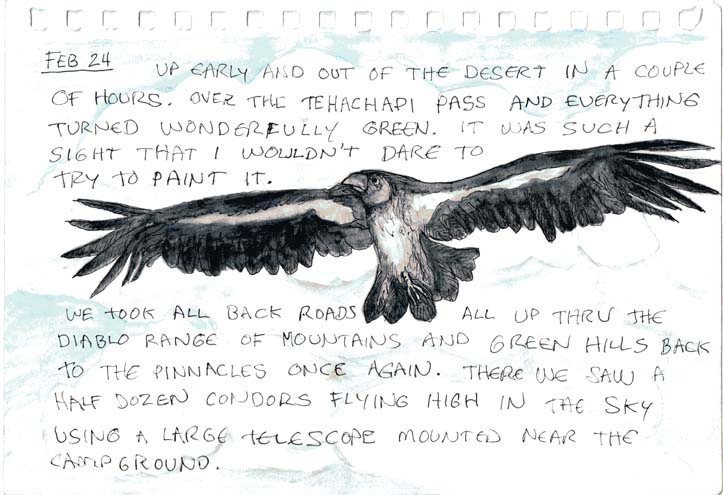 FEB 24 UP EARLY AND OUT OF THE DESERT IN A COUPLE
OF HOURS. OVER THE TEHACHAPI PASS AND EVERYTHING
TURNED WONDERFULLY GREEN. IT WAS SUCH A
SIGHT THAT I WOULDN'T DARE TO
TRY TO PAINT IT.
WE TOOK ALL BACK ROADS ALL UP THRU THE
DIABLO RANGE OF MOUNTAINS AND GREEN HILLS BACK
TO THE PINNACLES ONCE AGAIN. THERE WE SAW A
HALF DOZEN CONDORS FLYING HIGH IN THE SKY
USING A LARGE TELESCOPE MOUNTED NEAR THE
CAMPGROUND.